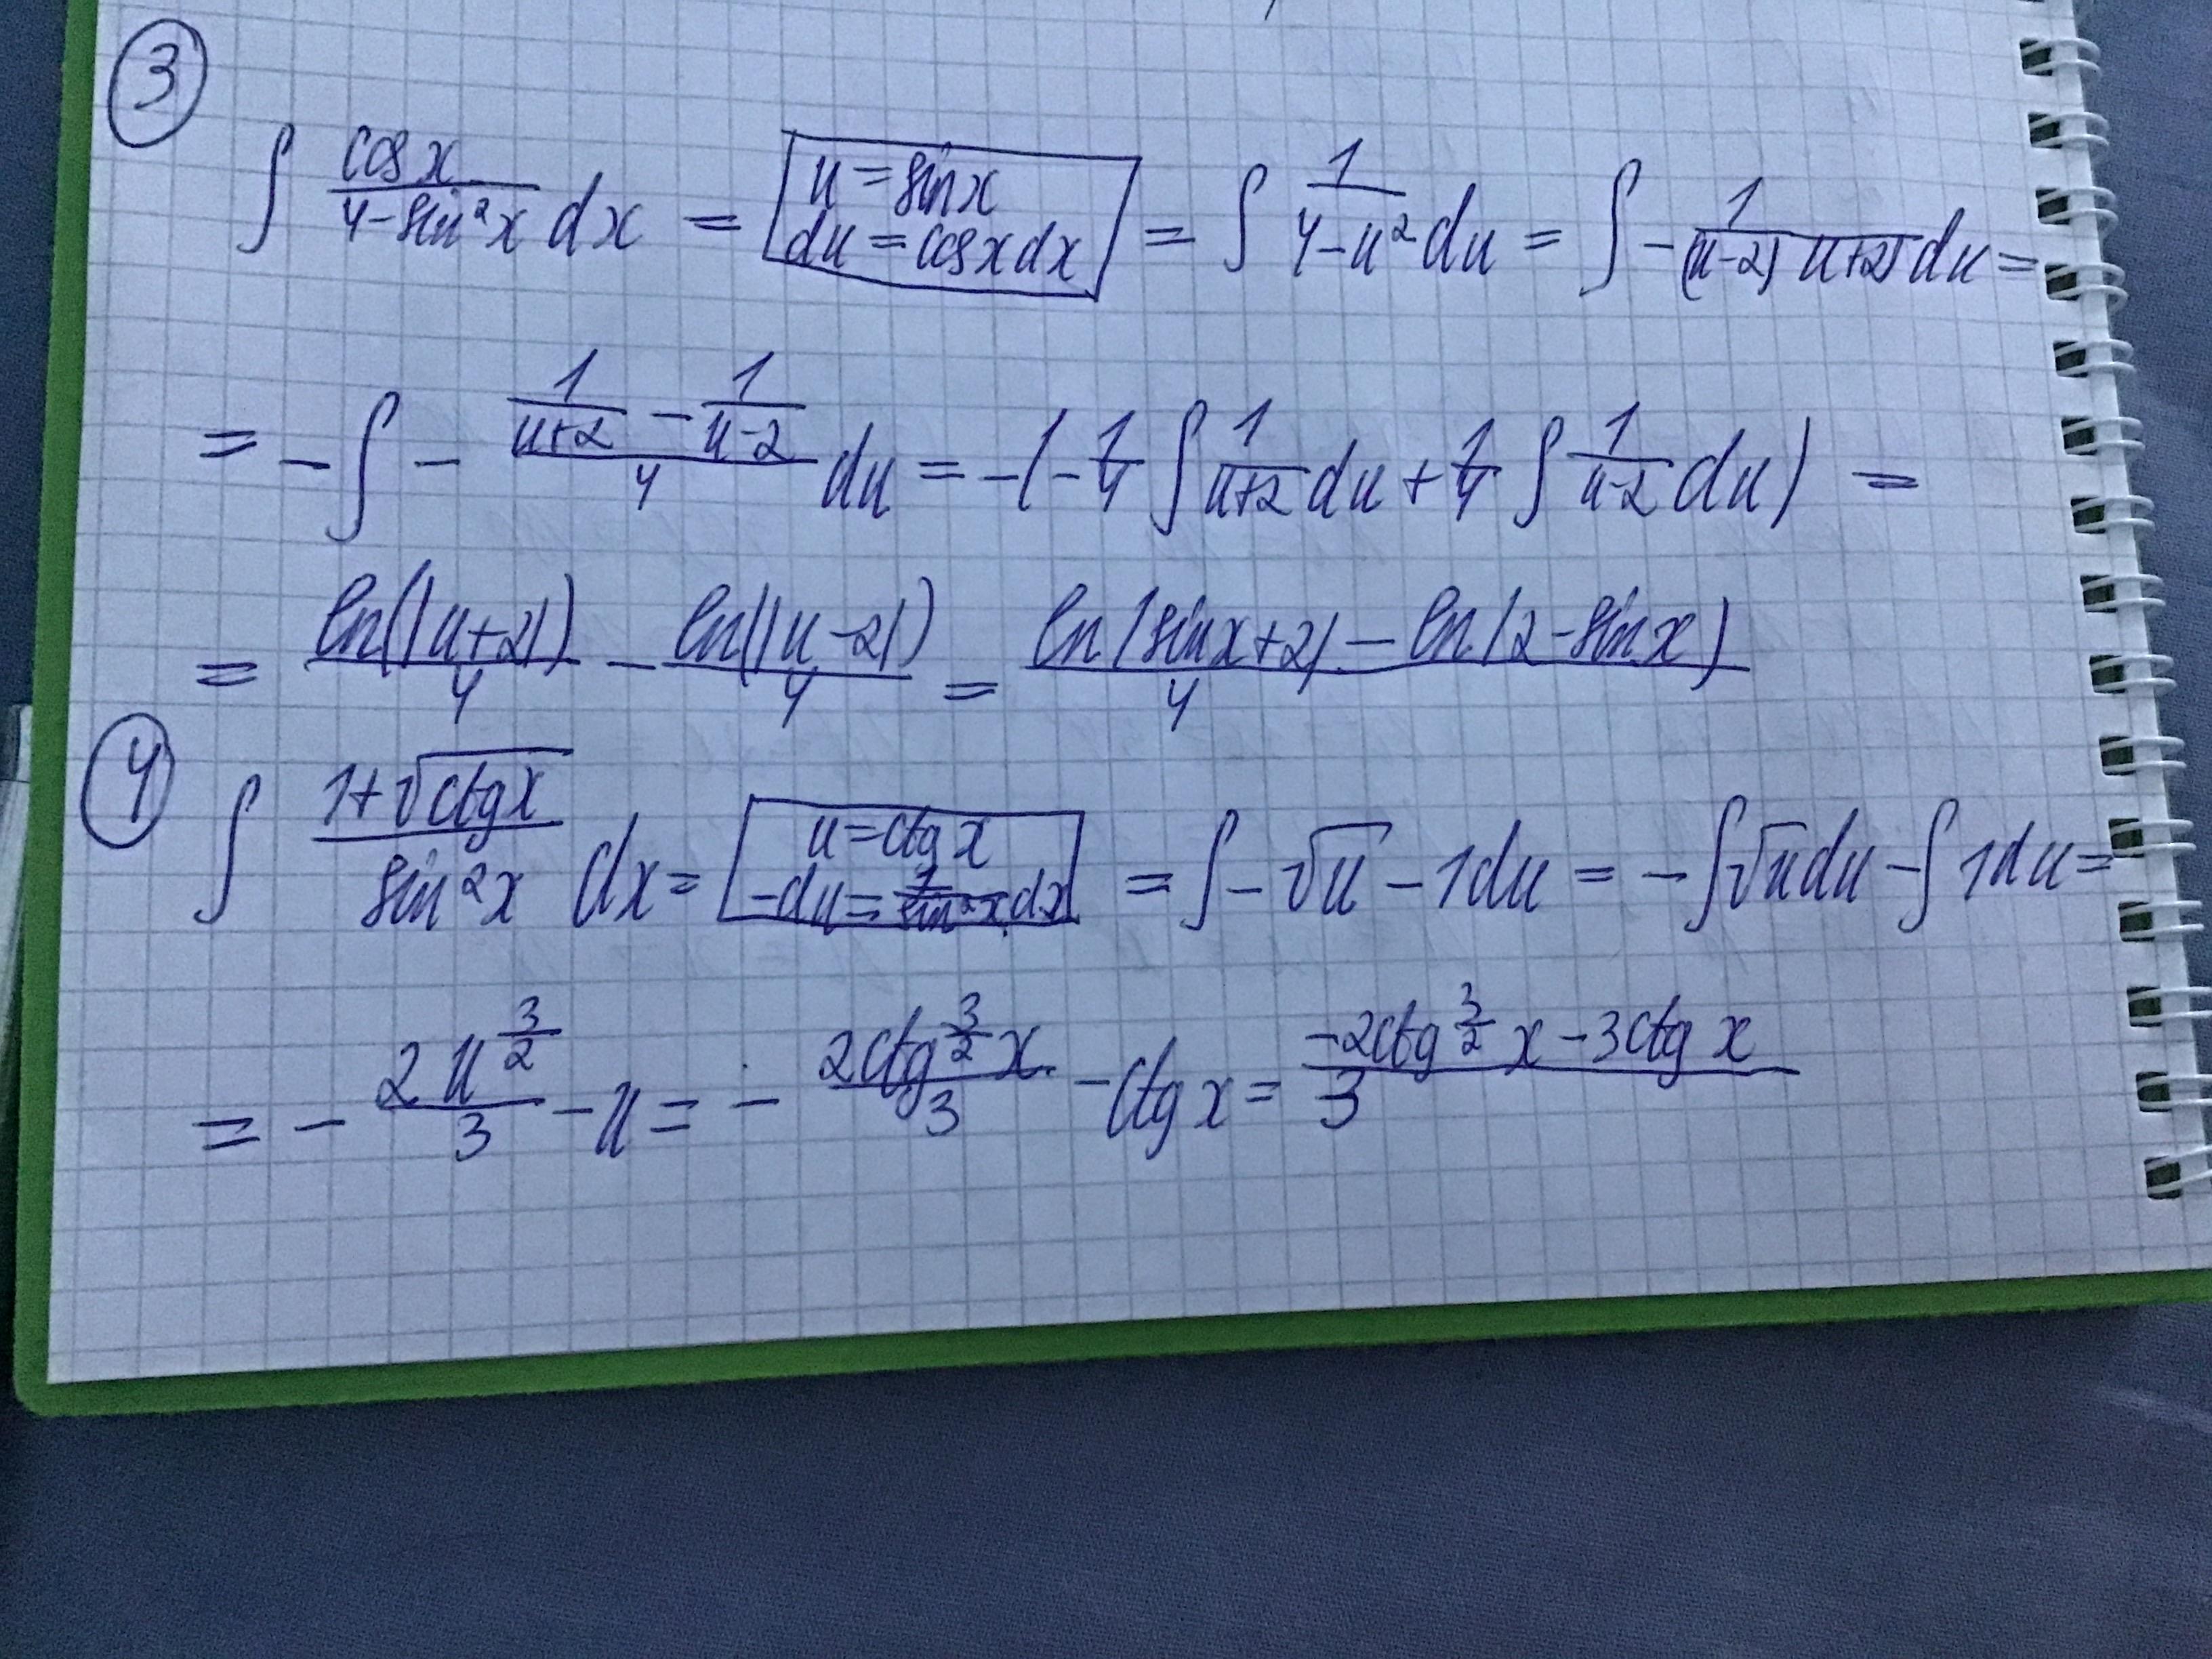 ③
∫ cos x / (4 - sin²x) dx = [u = sin x, du = cos x dx] = ∫ 1/(4-u²) du = ∫ - 1/((u-2)(u+2)) du =
= - ∫ - (1/(u+2) - 1/(u-2))/4 du = -(-1/4 ∫ 1/(u+2) du + 1/4 ∫ 1/(u-2) du) =
= ln(|u+2|)/4 - ln(|u-2|)/4 = (ln(sin x+2) - ln(2-sin x))/4
④
∫ (1+√ctg x)/sin²x dx = [u = ctg x, -du = 1/sin²x dx] = ∫ -√u - 1 du = - ∫ √u du - ∫ 1 du =
= - 2u^(3/2)/3 - u = - 2ctg^(3/2) x/3 - ctg x = (-2ctg^(3/2) x - 3ctg x)/3